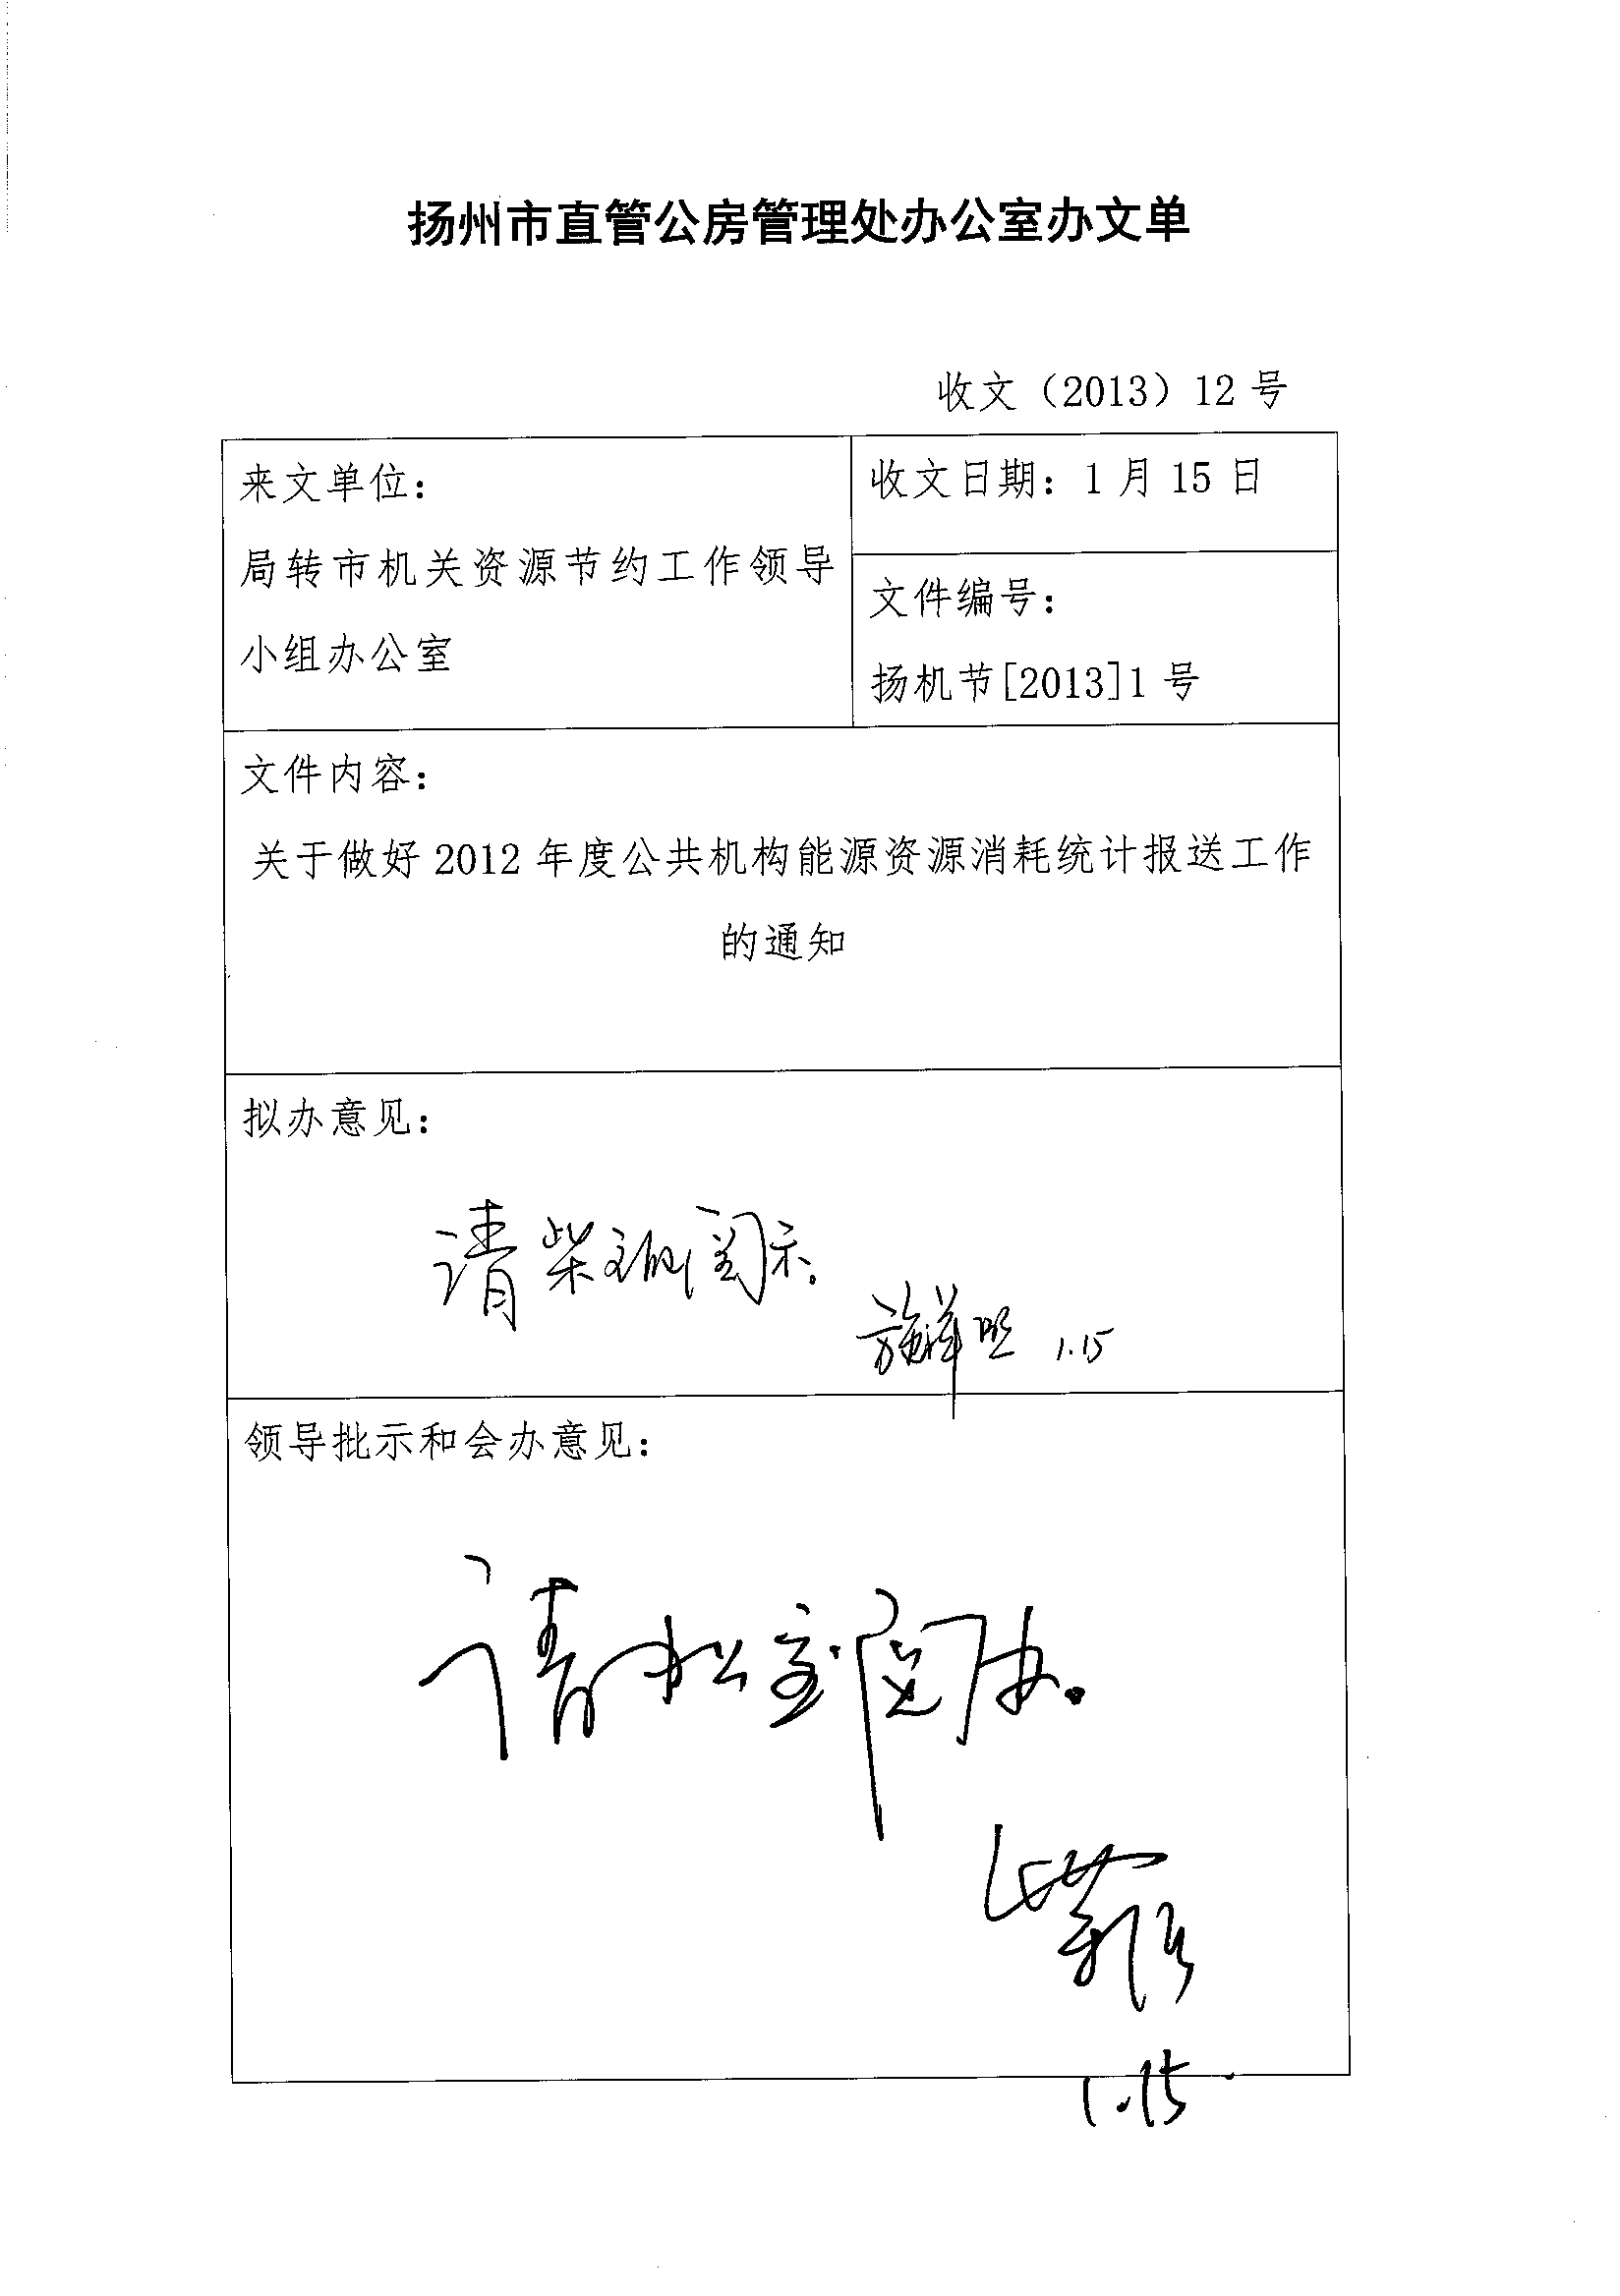 扬州市直管公房管理处办公室办文单
收文（2013）12 号
来文单位：
局转市机关资源节约工作领导
小组办公室
收文日期：1 月 15 日
文件编号：
扬机节[2013]1 号
文件内容：
关于做好 2012 年度公共机构能源资源消耗统计报送工作
的通知
拟办意见：
请柴 阅示。
施祥 1.15
领导批示和会办意见：
请办公室阅办。
柴
1.15